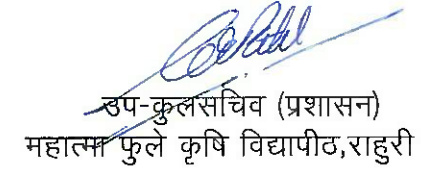 उप-कुलसचिव (प्रशासन)
महात्मा फुले कृषि विद्यापीठ,राहुरी